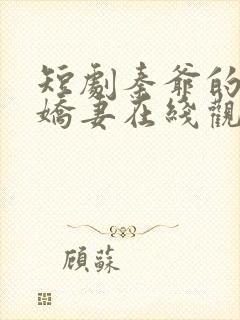 短劇秦爺的
嬌妻在綫觀
顾蘇